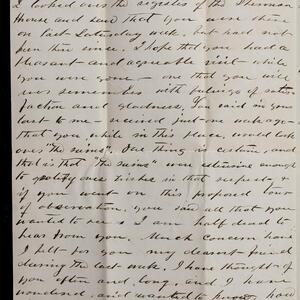 I looked over the register of the Sherman
House and saw that you were there
on last Saturday week, but had not
been there since. I hope that you had a
pleasant and agreeable visit while
you were gone — one that you will
remember with feelings of satis
faction and gladness. You said in your
last to me — received just one week ago —
that you, while in this place, would look
over "the ruins". One thing is certain, and
that is that "the ruins" were extensive enough
to gratify ones in that respect, &
if you went on this proposed tour
of observation, you saw all that you
wanted to see. I am half dead to
hear from you. Much concern have
I felt for you my dearest friend
during the last week. I have thought of
you often and long, and I have
wondered and wanted to know